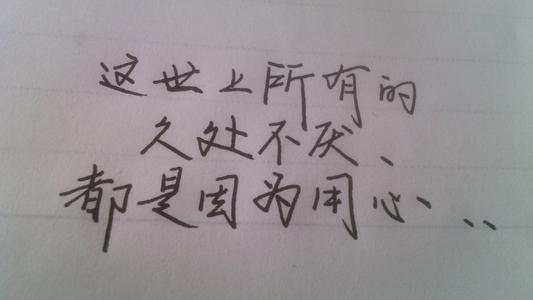 这世上所有的
久处不厌、
都是因为用心、、、